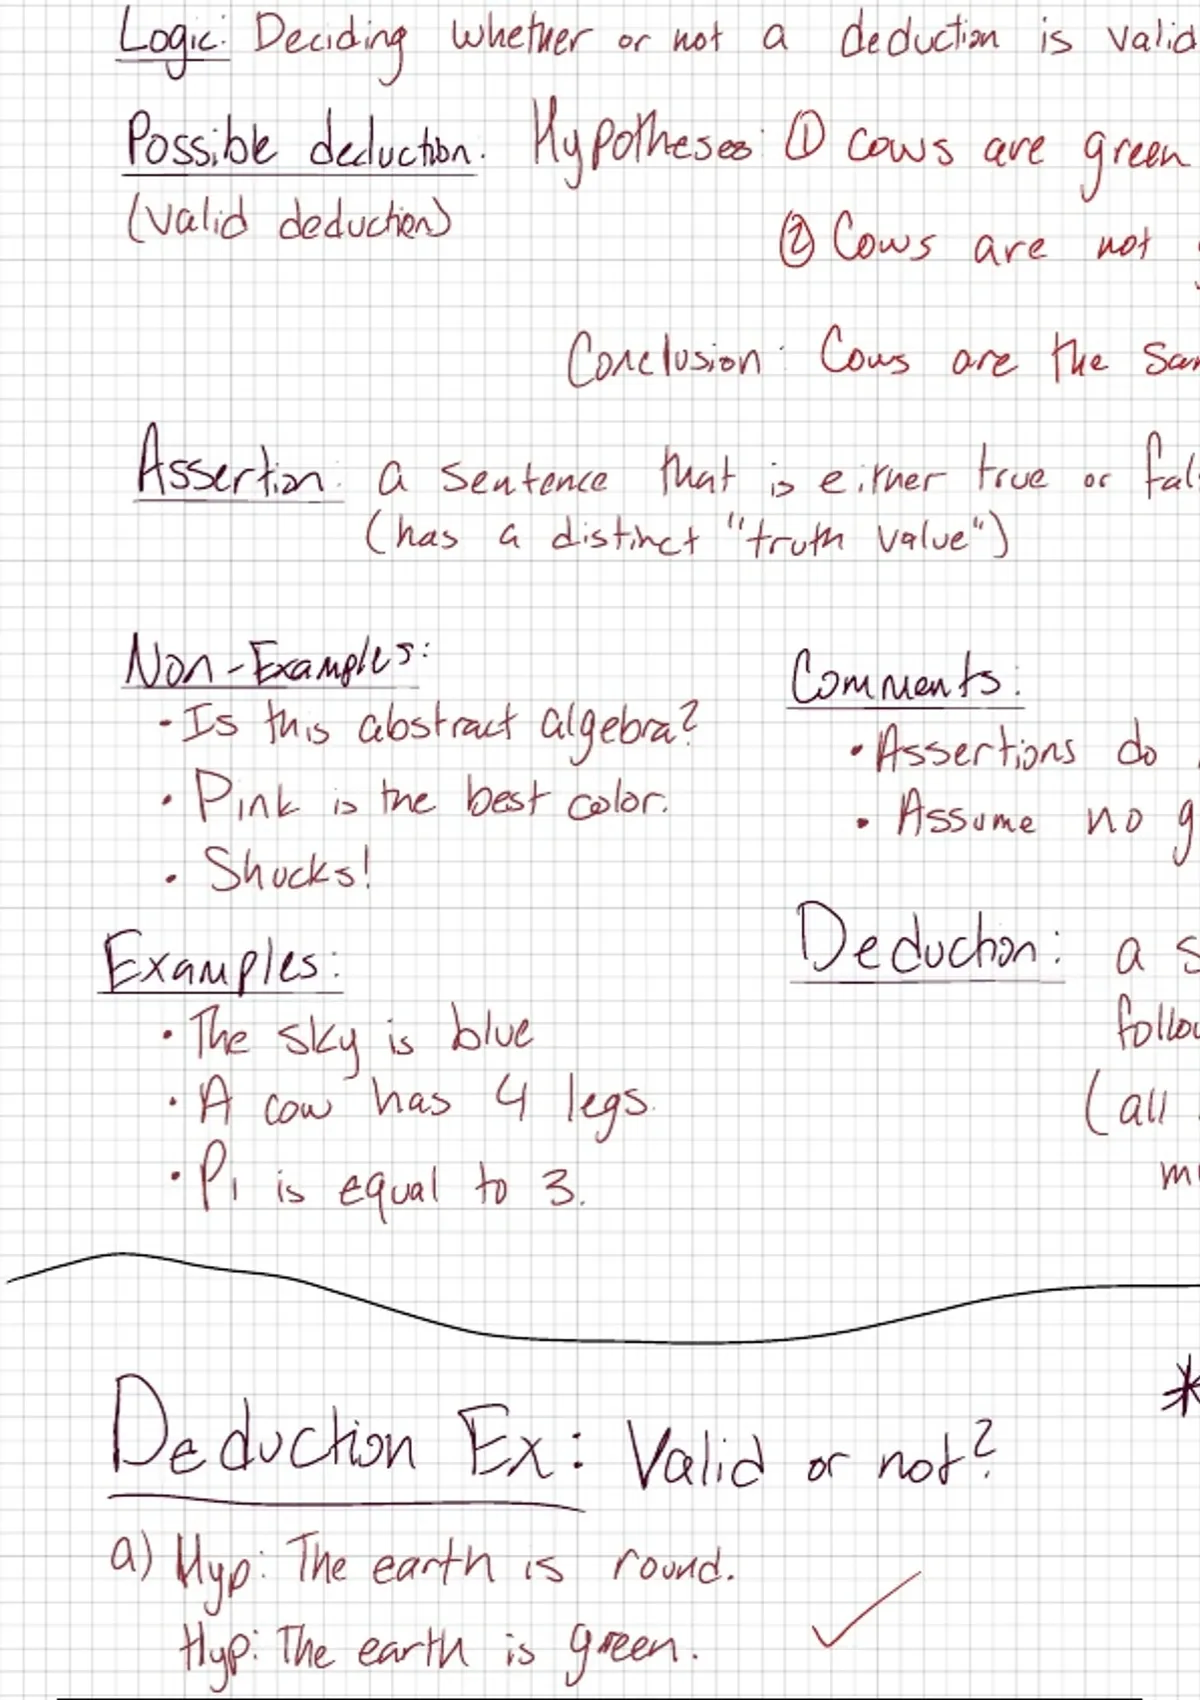 Logic: Deciding whether or not a deduction is valid
Possible deduction. Hypotheses: ① cows are green
(valid deduction)
② Cows are not
Conclusion: Cows are the
Assertion: a sentence that is either true or
(has a distinct "truth value")
Non-Examples:
• Is this abstract algebra?
• Pink is the best color.
• Shucks!
Comments:
• Assertions do
• Assume no g
Examples:
• The sky is blue
• A cow has 4 legs.
• Pi is equal to 3.
Deduction: a s
follow
(all
m
*
Deduction Ex: Valid or not?
a) Hyp: The earth is round.
Hyp: The earth is green. ✓